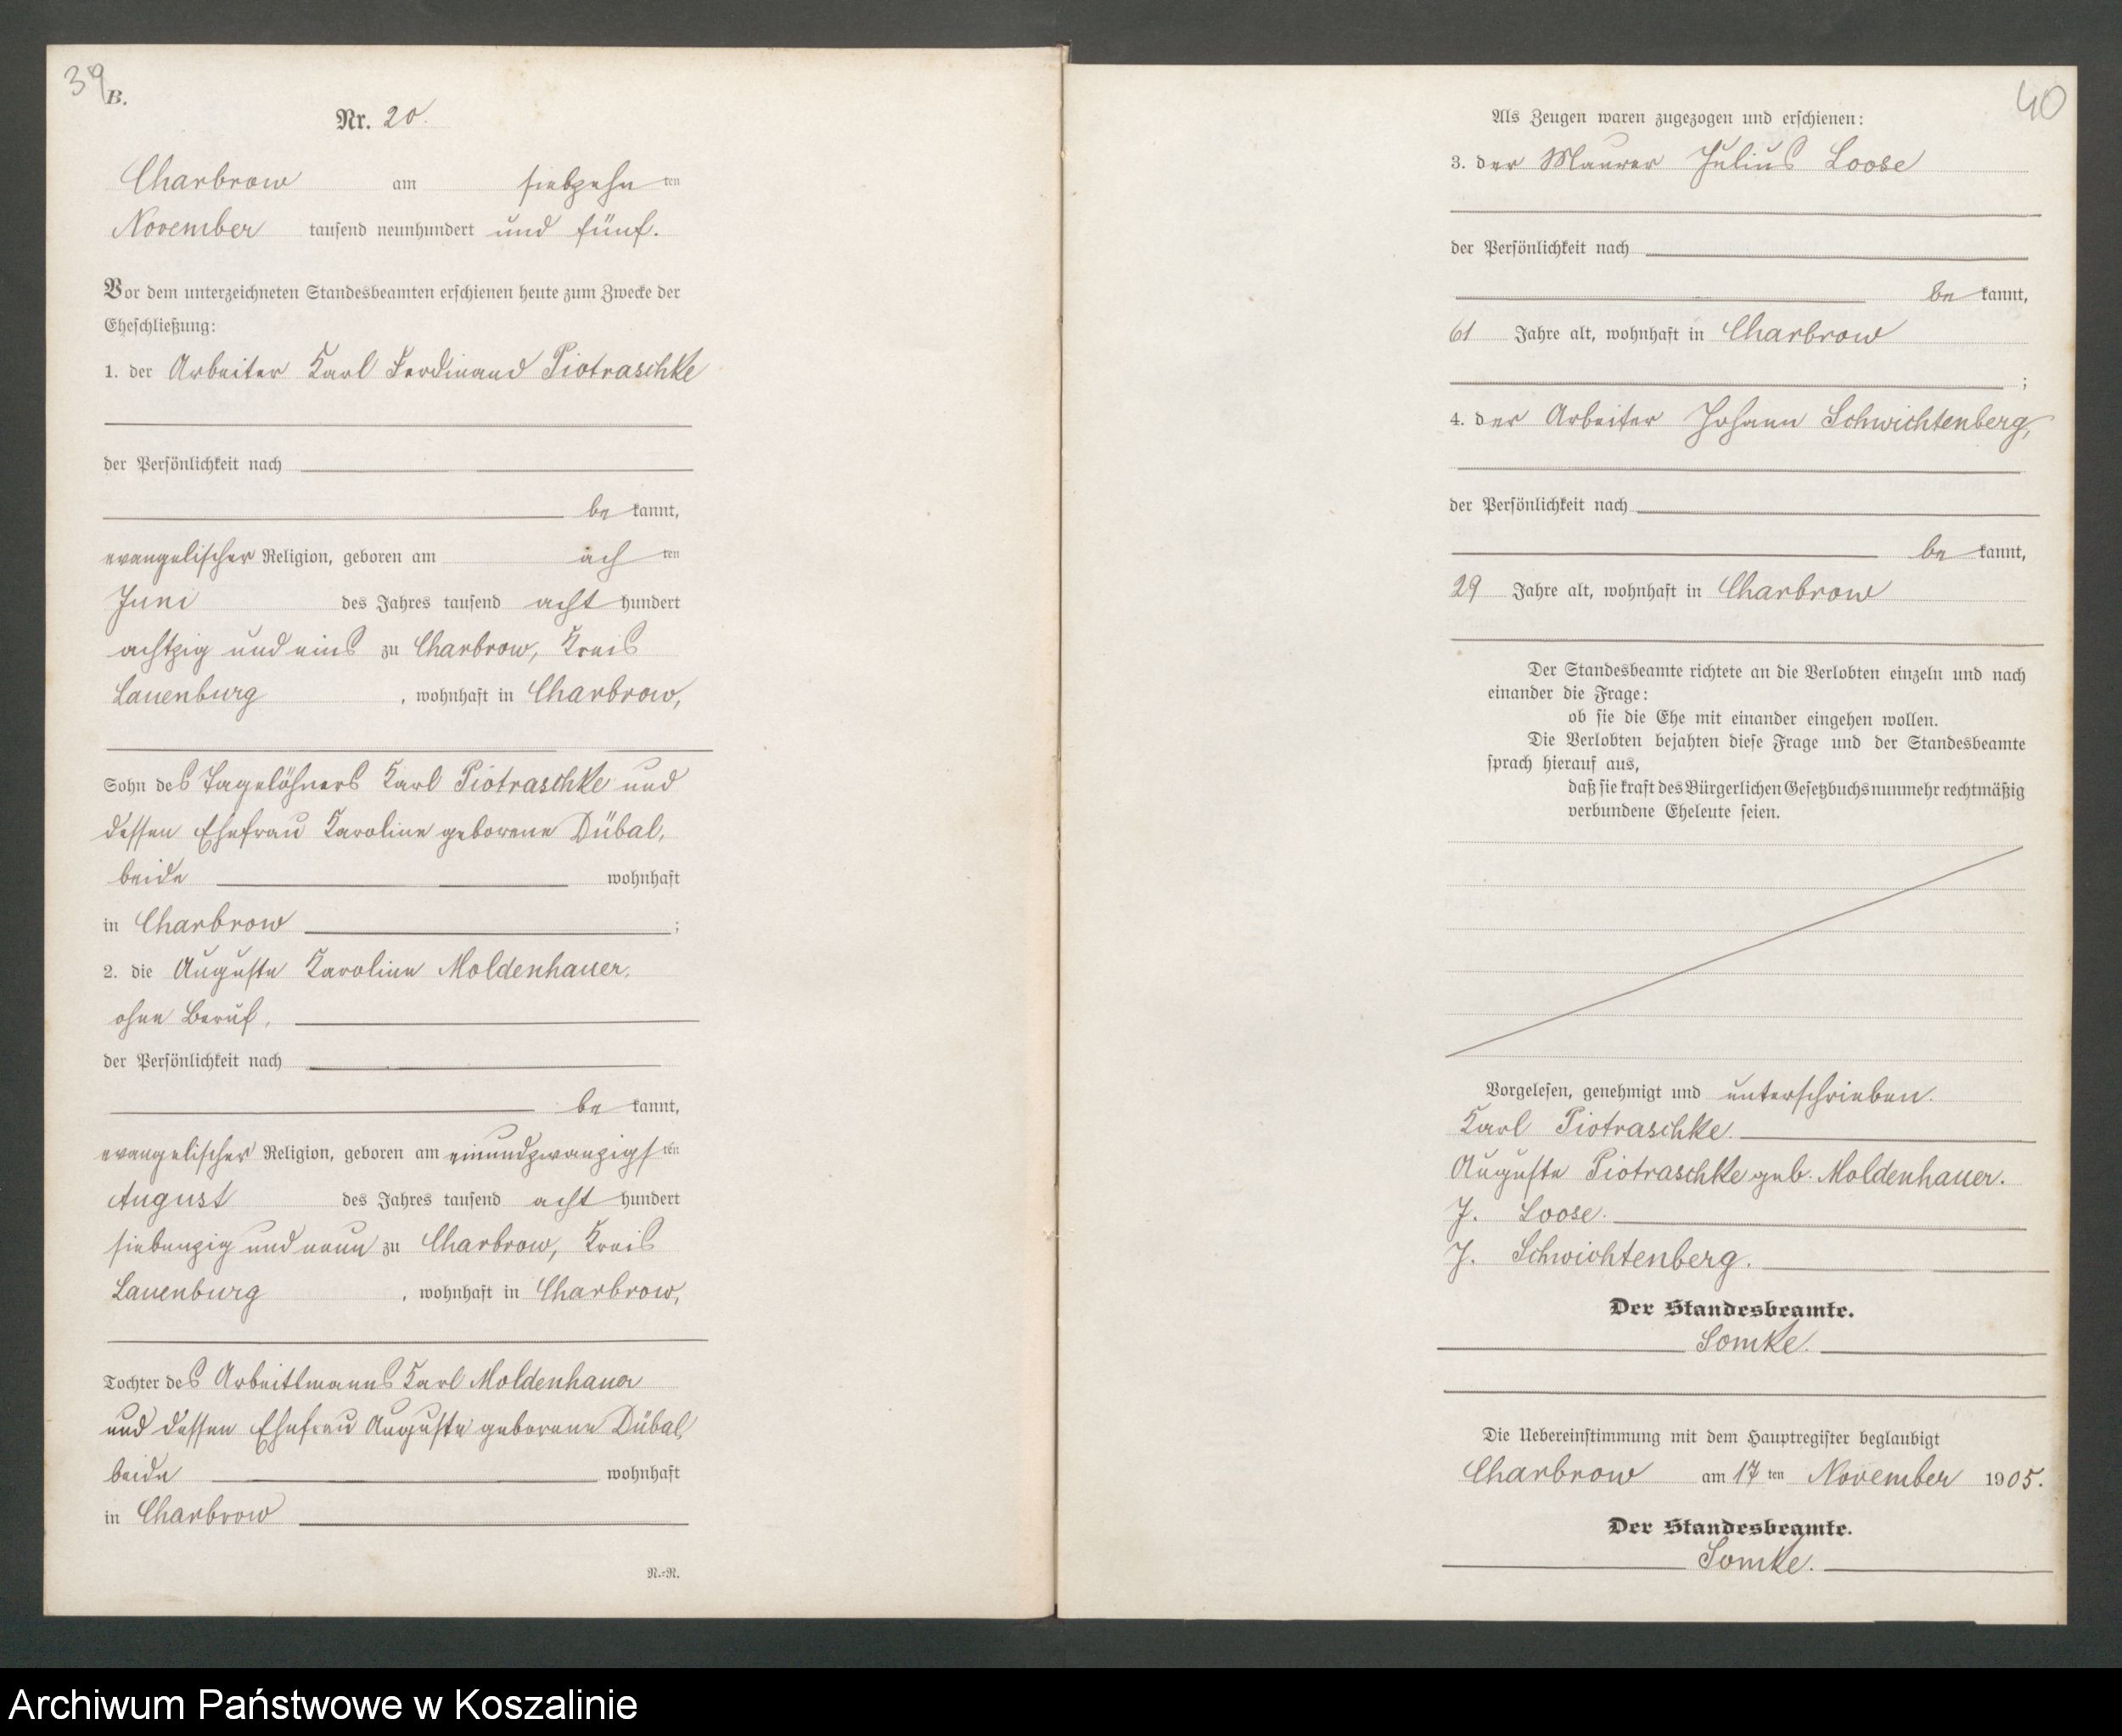 39
B.
Nr. 20.
Charbrow am siebzehn ten
November tausend neunhundert und fünf.
Vor dem unterzeichneten Standesbeamten erschienen heute zum Zwecke der
Eheschließung:
1. der Arbeiter Karl Ferdinand Piotraschke
der Persönlichkeit nach
be kannt,
evangelischer Religion, geboren am ach ten
Juni des Jahres tausend acht hundert
achtzig und eins zu Charbrow, Kreis
Lauenburg, wohnhaft in Charbrow,
Sohn des Tagelöhners Karl Piotraschke und
dessen Ehefrau Karoline geborene Dübal,
beide wohnhaft
in Charbrow ;
2. die Auguste Karoline Moldenhauer,
ohne Beruf,
der Persönlichkeit nach
be kannt,
evangelischer Religion, geboren am einundzwanzigs ten
August des Jahres tausend acht hundert
siebenzig und neun zu Charbrow, Kreis
Lauenburg, wohnhaft in Charbrow,
Tochter des Arbeitsmanns Karl Moldenhauer
und dessen Ehefrau Auguste geborene Dübal,
beide wohnhaft
in Charbrow
N.-N.
40
Als Zeugen waren zugezogen und erschienen:
3. der Maurer Julius Loose
der Persönlichkeit nach
be kannt,
61 Jahre alt, wohnhaft in Charbrow
;
4. der Arbeiter Johann Schwichtenberg,
der Persönlichkeit nach
be kannt,
29 Jahre alt, wohnhaft in Charbrow
Der Standesbeamte richtete an die Verlobten einzeln und nach
einander die Frage:
ob sie die Ehe mit einander eingehen wollen.
Die Verlobten bejahten diese Frage und der Standesbeamte
sprach hierauf aus,
daß sie kraft des Bürgerlichen Gesetzbuchs nunmehr rechtmäßig
verbundene Eheleute seien.
Vorgelesen, genehmigt und unterschrieben.
Karl Piotraschke.
Auguste Piotraschke geb. Moldenhauer.
J. Loose.
J. Schwichtenberg.
Der Standesbeamte.
Somke.
Die Uebereinstimmung mit dem Hauptregister beglaubigt
Charbrow am 17 ten November 1905.
Der Standesbeamte.
Somke.
Archiwum Państwowe w Koszalinie